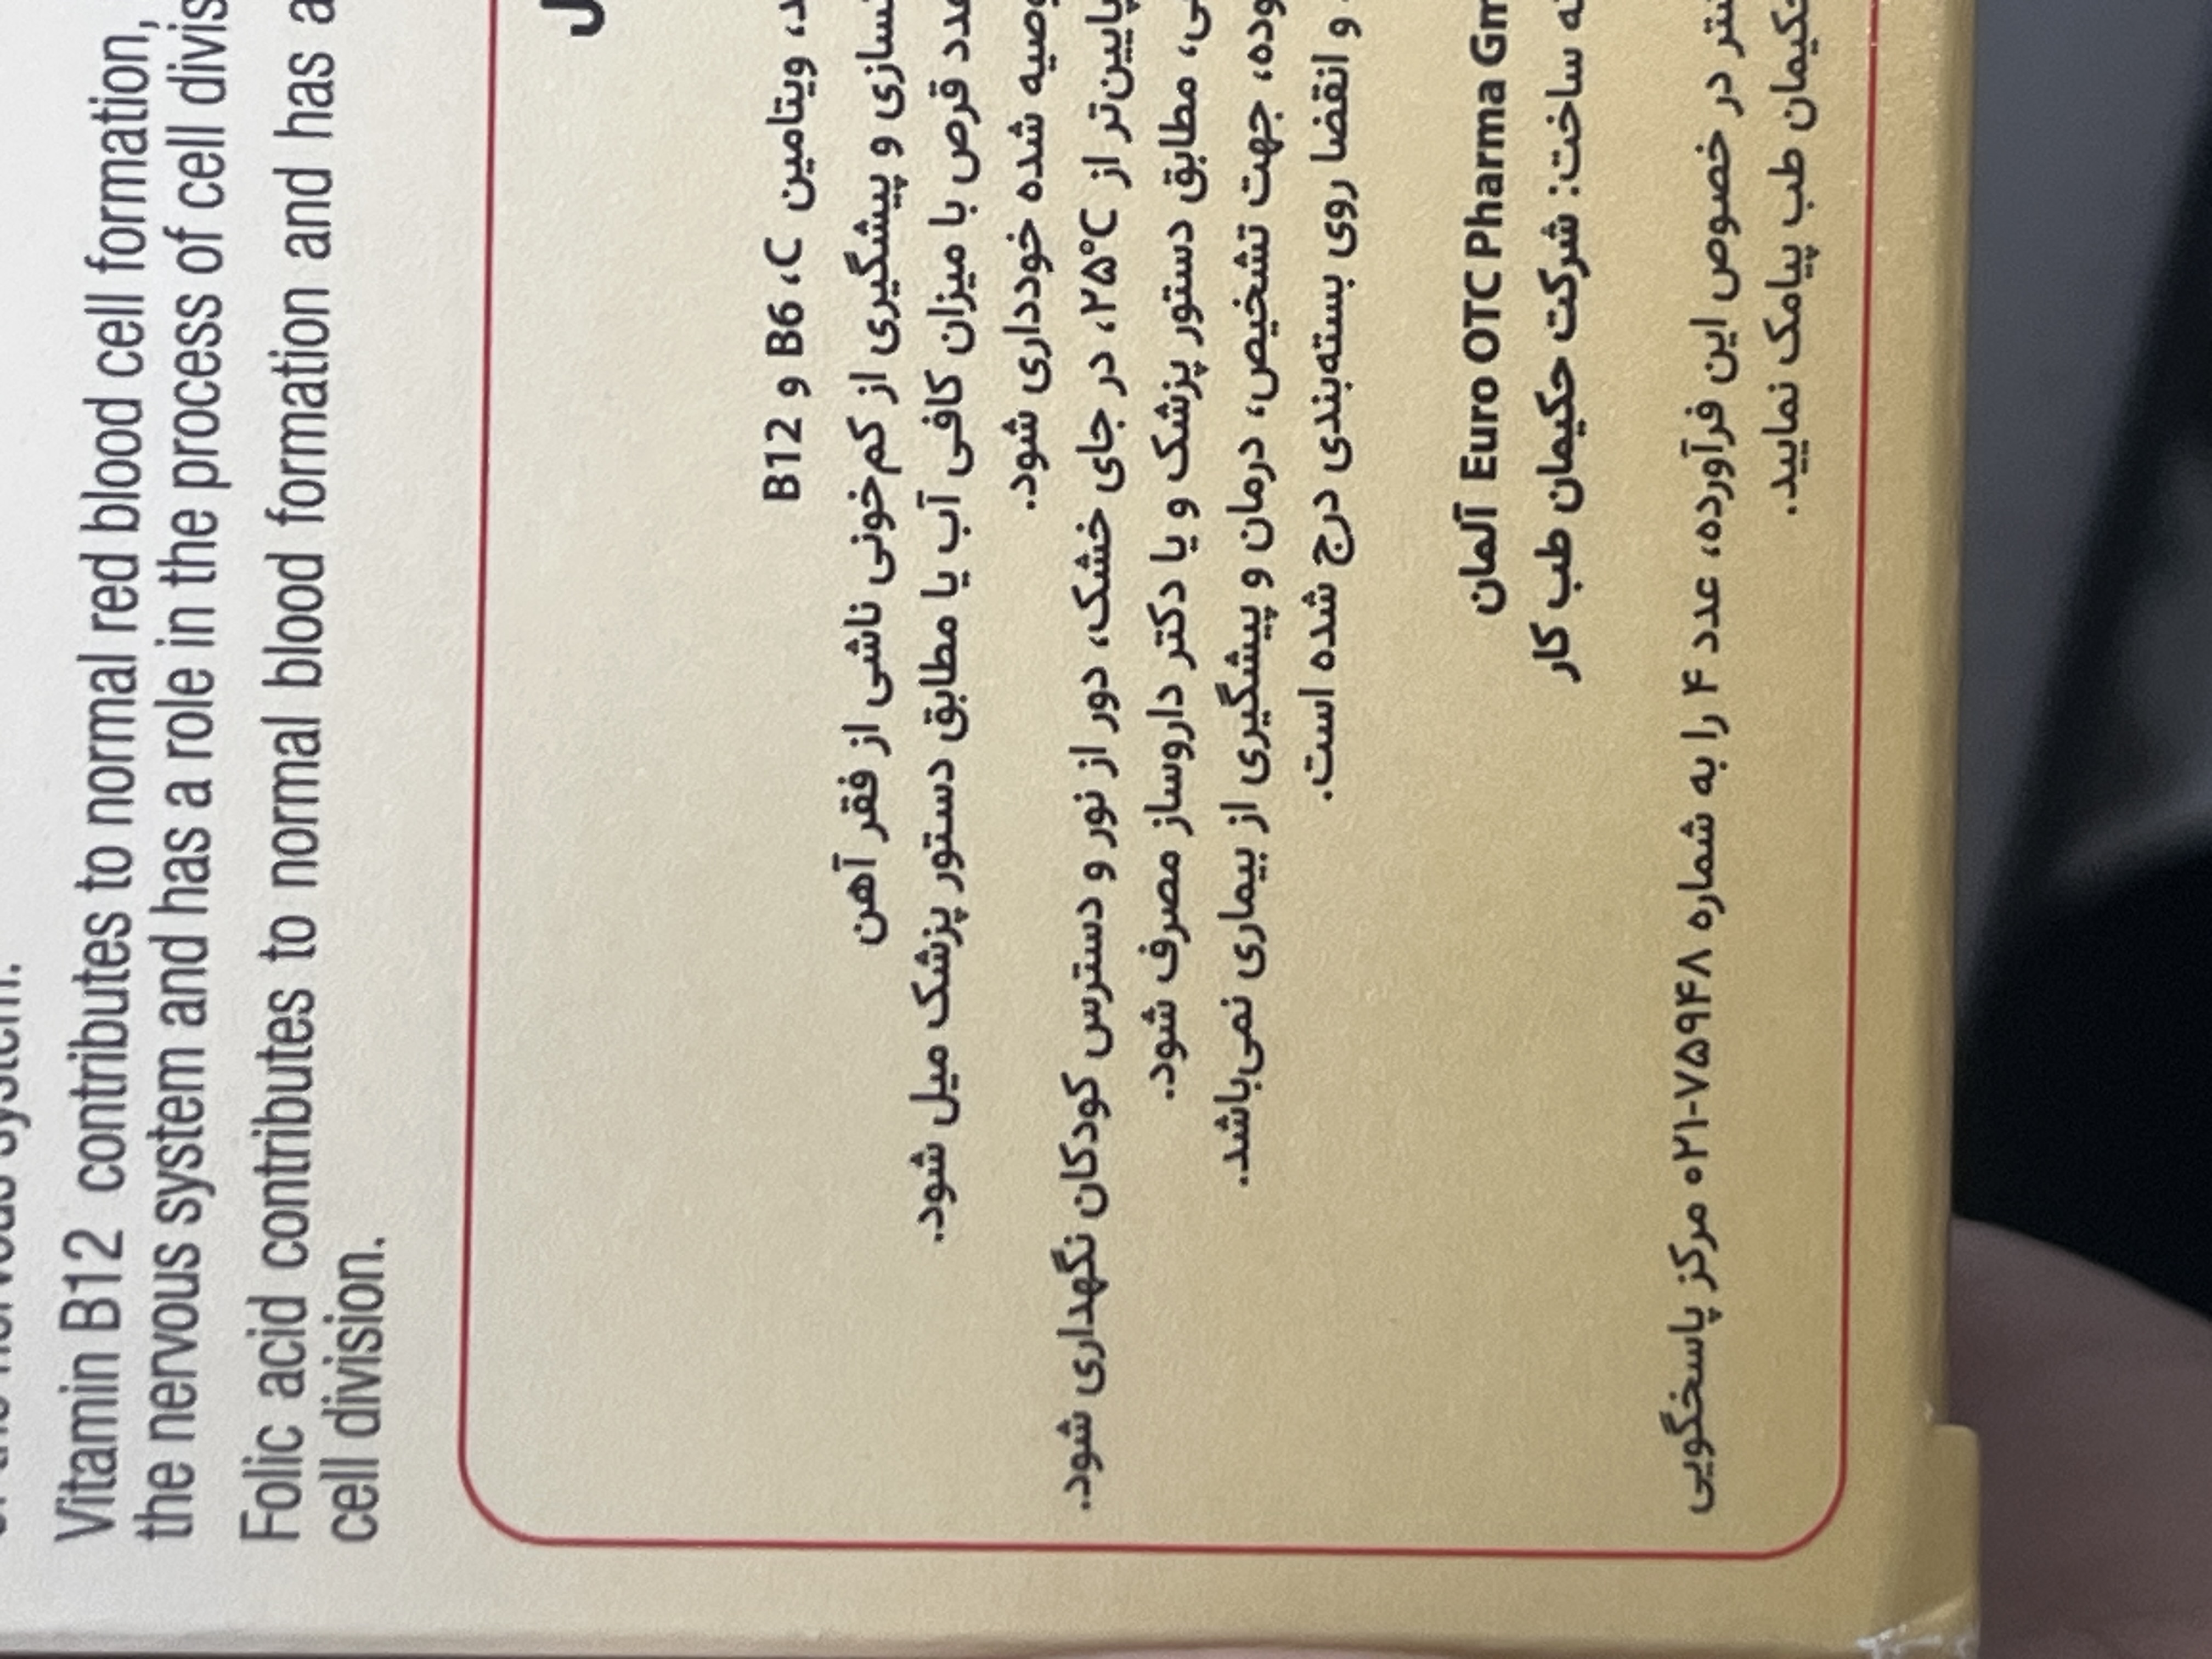 Vitamin B12 contributes to normal red blood cell formation,
the nervous system and has a role in the process of cell
Folic acid contributes to normal blood formation and has a
cell division.
ویتامین C، B6 و B12
و پیشگیری از کم‌خونی ناشی از فقر آهن
قرص با میزان کافی آب یا مطابق دستور پزشک میل شود.
شده خودداری شود.
پایین‌تر از ۲۵°C، در جای خشک، دور از نور و دسترس کودکان نگهداری شود.
مطابق دستور پزشک و یا دکتر داروساز مصرف شود.
جهت تشخیص، درمان و پیشگیری از بیماری نمی‌باشد.
و انقضا روی بسته‌بندی درج شده است.
Euro OTC Pharma آلمان
ساخت: شرکت حکیمان طب کار
در خصوص این فرآورده، عدد ۴ را به شماره ۷۵۹۴۸-۰۲۱ مرکز پاسخگویی
طب پیامک نمایید.